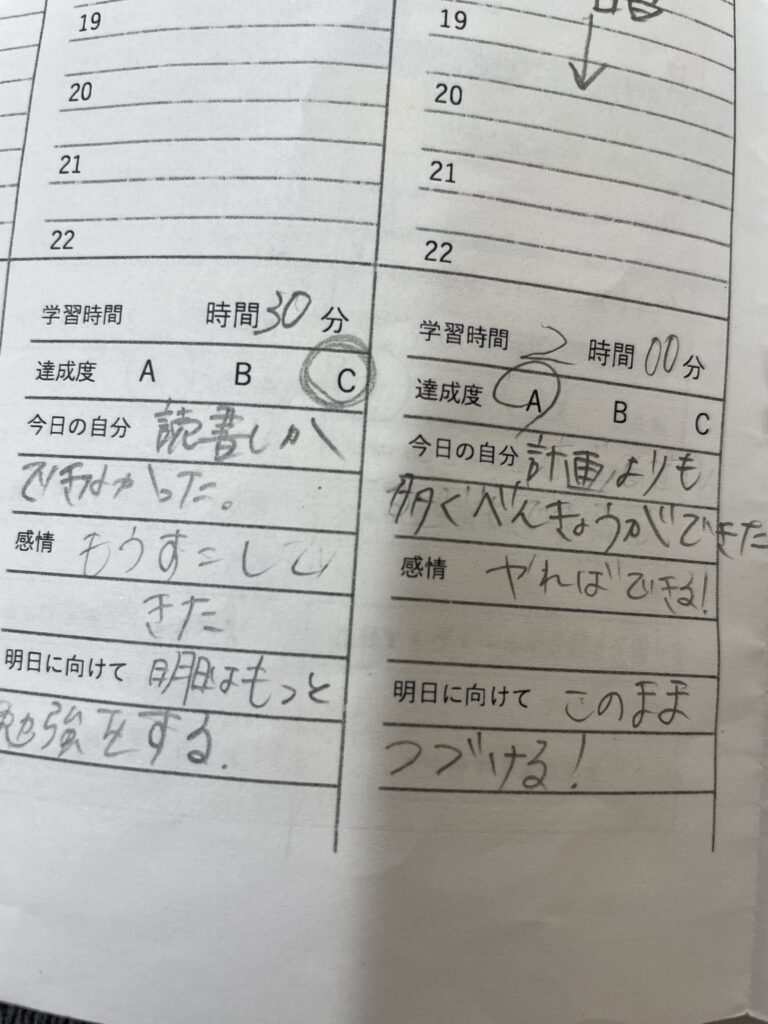 19
20
21
22
学習時間 時間30分
達成度 A B C
今日の自分 読書しか
できなかった。
感情 もうすこしで
きた
明日に向けて 明日はもっと
勉強をする.
19
20
21
22
学習時間 2時間00分
達成度 A B C
今日の自分 計画よりも
多くべんきょうができた
感情 やればできる!
明日に向けて このまま
つづける!